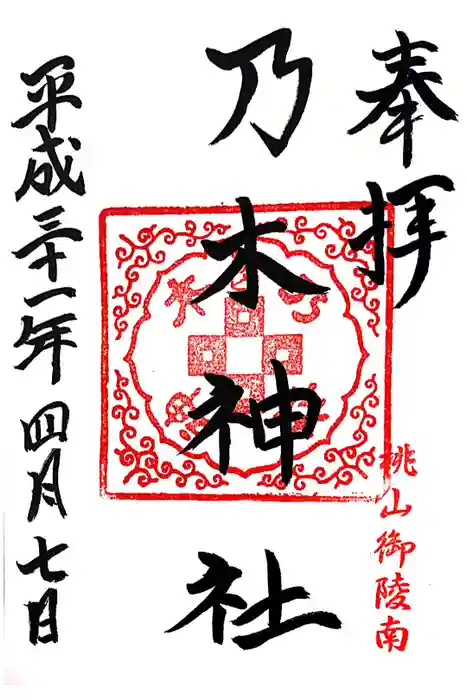 奉拝
桃山御陵南
乃木神社
平成三十一年四月七日